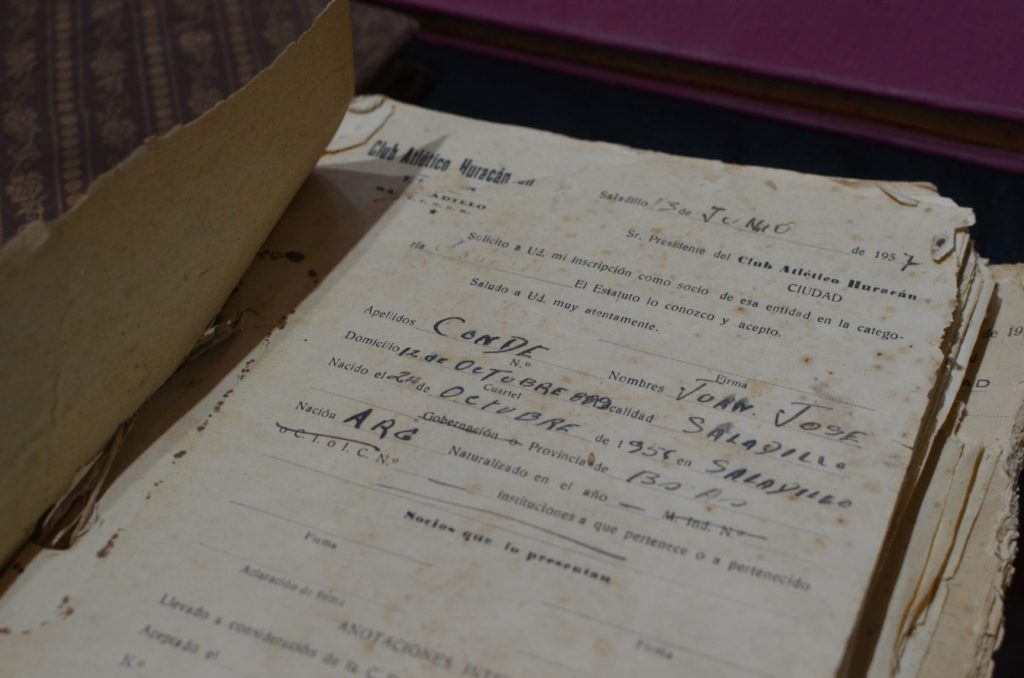 Club Atlético Huracán
SALADILLO
Saladillo 13 de JUNIO de 1957
Sr. Presidente del Club Atlético Huracán
CIUDAD
Solicito a Ud. mi inscripción como socio de esa entidad en la catego-
ría El Estatuto lo conozco y acepto.
Saludo a Ud. muy atentamente.
Firma
Apellidos CONDE Nombres JUAN JOSE
Domicilio 12 DE OCTUBRE N.º Cuartel Localidad SALADILLO
Nacido el 24 de OCTUBRE de 195 en SALADILLO
Nación ARG Gobernación o Provincia de BS AS
o C. I. o L. C. N.º Naturalizado en el año — M. Ind. N.º
instituciones a que pertenece o a pertenecido
Socios que lo presentan
Firma
Firma
Aclaración de firma
ANOTACIONES
Llevado a consideración de la C.
Aceptado el
N.º
de 19
AD